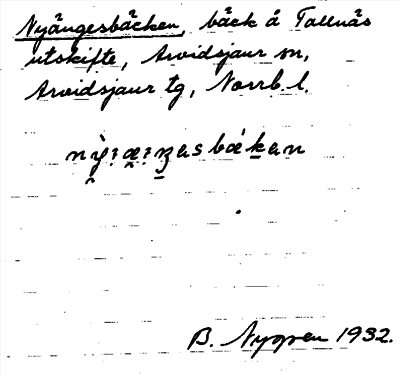 Nyängesbäcken, bäck å Tallnäs
utskifte, Arvidsjaur sn,
Arvidsjaur tg, Norrb. l.
B. Nygren 1932.